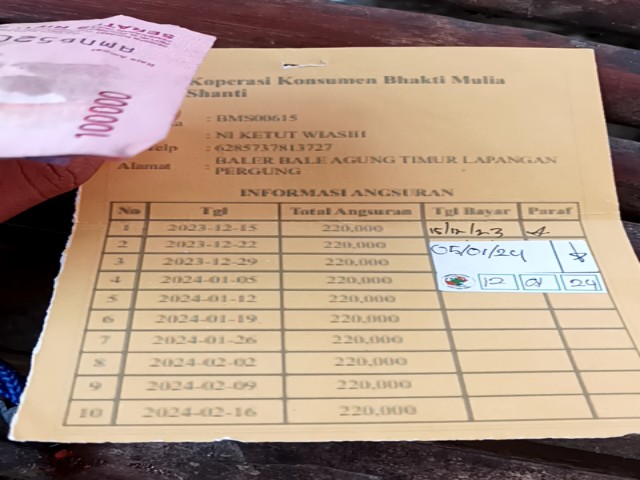 100000
Koperasi Konsumen Bhakti Mulia
Shanti
: BMS00615
: NI KETUT WIASIH
Telp : 6285737813727
Alamat : BALER BALE AGUNG TIMUR LAPANGAN
PERGUNG
INFORMASI ANGSURAN
No Tgl Total Angsuran Tgl Bayar Paraf
1 2023-12-15 220,000 15/12/23
2 2023-12-22 220,000 05/01/24
3 2023-12-29 220,000
4 2024-01-05 220,000 12 01 24
5 2024-01-12 220,000
6 2024-01-19 220,000
7 2024-01-26 220,000
8 2024-02-02 220,000
9 2024-02-09 220,000
10 2024-02-16 220,000